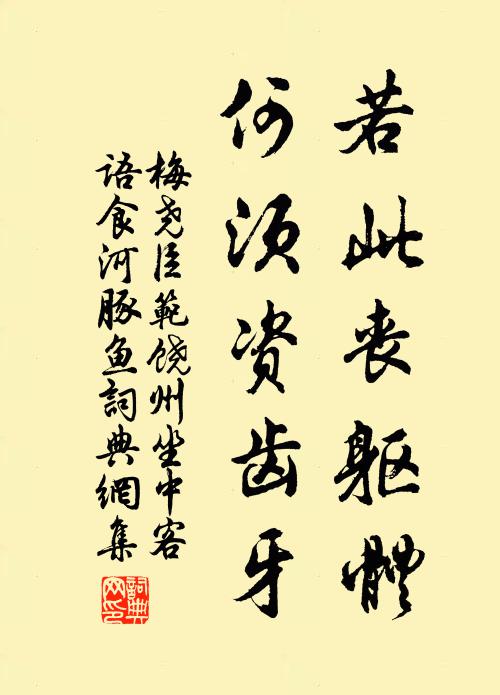 若此丧躯體
何须资齿牙
梅尧臣範饶州坐中客
语食河豚鱼詞典網集
詞典网印